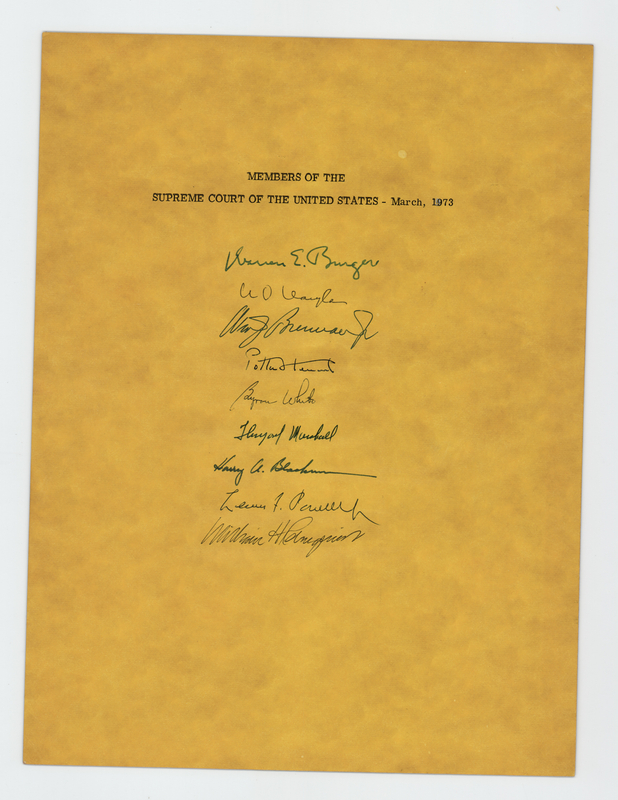 MEMBERS OF THE
SUPREME COURT OF THE UNITED STATES - March, 1973
Warren E. Burger
W O Douglas
Wm J Brennan Jr
Potter Stewart
Byron White
Thurgood Marshall
Harry A. Blackmun
Lewis F. Powell Jr
William H Rehnquist